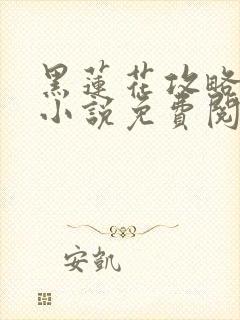 黑蓮花攻略
小說免費閱
安凱